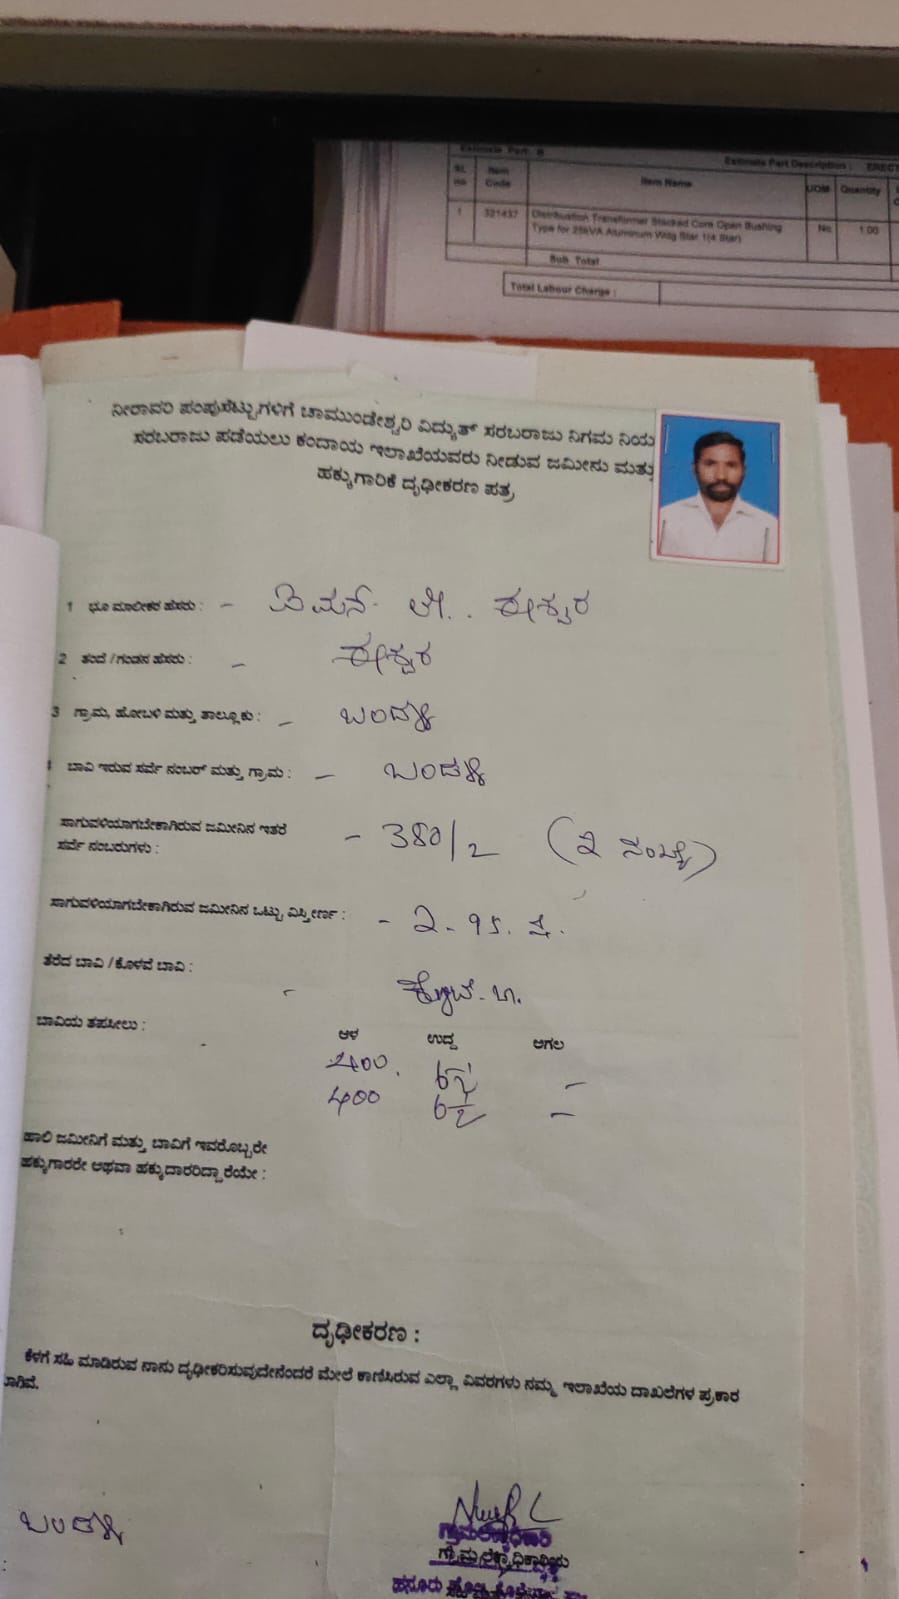 Estimate Part: B Estimate Part Description : ERECT
SL no Item Code Item Name UOM Quantity
1 321437 Distribution Transformer Stacked Core Open Bushing Type for 25kVA Aluminum Wdg Star 1(4 Star) No 1.00
Sub Total
Total Labour Charge :
ನೀರಾವರಿ ಪಂಪುಸೆಟ್ಟುಗಳಿಗೆ ಚಾಮುಂಡೇಶ್ವರಿ ವಿದ್ಯುತ್ ಸರಬರಾಜು ನಿಗಮ ನಿಯ
ಸರಬರಾಜು ಪಡೆಯಲು ಕಂದಾಯ ಇಲಾಖೆಯವರು ನೀಡುವ ಜಮೀನು ಮತ್ತು
ಹಕ್ಕುಗಾರಿಕೆ ದೃಢೀಕರಣ ಪತ್ರ
1 ಭೂ ಮಾಲೀಕರ ಹೆಸರು : - ಈಶ್ವರ
2 ತಂದೆ / ಗಂಡನ ಹೆಸರು : - ಈಶ್ವರ
3 ಗ್ರಾಮ, ಹೋಬಳಿ ಮತ್ತು ತಾಲ್ಲೂಕು : - ಬಂಡಳ್ಳಿ
ಬಾವಿ ಇರುವ ಸರ್ವೆ ನಂಬರ್ ಮತ್ತು ಗ್ರಾಮ : - ಬಂಡಳ್ಳಿ
ಸಾಗುವಳಿಯಾಗಬೇಕಾಗಿರುವ ಜಮೀನಿನ ಇತರೆ
ಸರ್ವೆ ನಂಬರುಗಳು : - 380/2
ಸಾಗುವಳಿಯಾಗಬೇಕಾಗಿರುವ ಜಮೀನಿನ ಒಟ್ಟು ವಿಸ್ತೀರ್ಣ : - 2-95.
ತೆರೆದ ಬಾವಿ / ಕೊಳವೆ ಬಾವಿ :
ಬಾವಿಯ ತಪಸೀಲು : ಆಳ ಉದ್ದ ಅಗಲ
400 6½ -
400 6½ -
ಹಾಲಿ ಜಮೀನಿಗೆ ಮತ್ತು ಬಾವಿಗೆ ಇವರೊಬ್ಬರೇ
ಹಕ್ಕುಗಾರರೇ ಅಥವಾ ಹಕ್ಕುದಾರರಿದ್ದಾರೆಯೇ :
ದೃಢೀಕರಣ :
ಕೆಳಗೆ ಸಹಿ ಮಾಡಿರುವ ನಾನು ದೃಢೀಕರಿಸುವುದೇನೆಂದರೆ ಮೇಲೆ ಕಾಣಿಸಿರುವ ಎಲ್ಲಾ ವಿವರಗಳು ನಮ್ಮ ಇಲಾಖೆಯ ದಾಖಲೆಗಳ ಪ್ರಕಾರ
ಬಂಡಳ್ಳಿ
ಗ್ರಾಮಲೆಕ್ಕಾಧಿಕಾರಿ
ಗ್ರಾಮಲೆಕ್ಕಾಧಿಕಾರಿಯ